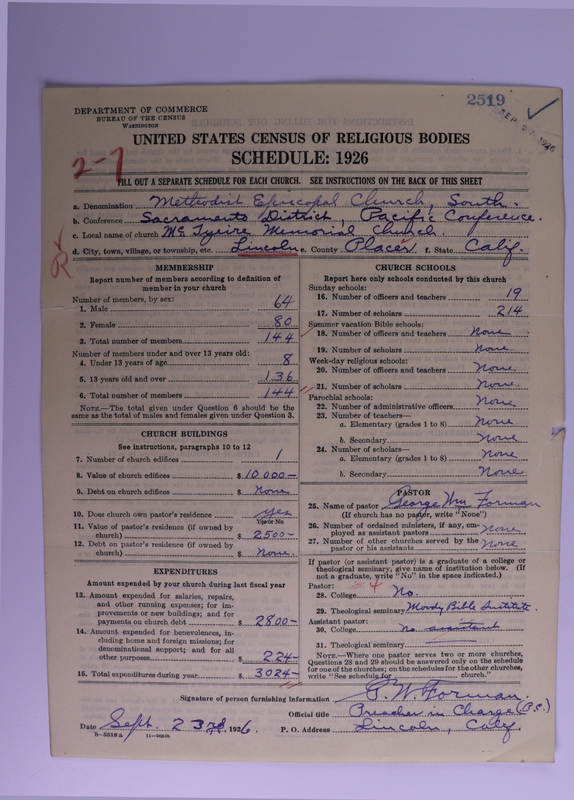 2519
SEP 27 1926
DEPARTMENT OF COMMERCE
BUREAU OF THE CENSUS
WASHINGTON
UNITED STATES CENSUS OF RELIGIOUS BODIES
SCHEDULE: 1926
2-7
FILL OUT A SEPARATE SCHEDULE FOR EACH CHURCH. SEE INSTRUCTIONS ON THE BACK OF THIS SHEET
a. Denomination Methodist Episcopal Church, South.
b. Conference Sacramento District, Pacific Conference.
c. Local name of church Mc Tyeire Memorial Church
d. City, town, village, or township, etc. Lincoln e. County Placer f. State Calif.
MEMBERSHIP
Report number of members according to definition of
member in your church
Number of members, by sex:
1. Male 64
2. Female 80
3. Total number of members 144
Number of members under and over 13 years old:
4. Under 13 years of age 8
5. 13 years old and over 136
6. Total number of members 144
NOTE.—The total given under Question 6 should be the
same as the total of males and females given under Question 3.
CHURCH BUILDINGS
See instructions, paragraphs 10 to 12
7. Number of church edifices 1
8. Value of church edifices $ 10000-
9. Debt on church edifices $ None
10. Does church own pastor's residence yes
Yes or No
11. Value of pastor's residence (if owned by
church) $ 2500-
12. Debt on pastor's residence (if owned by
church) $ None.
EXPENDITURES
Amount expended by your church during last fiscal year
13. Amount expended for salaries, repairs,
and other running expenses; for im-
provements or new buildings; and for
payments on church debt $ 2800-
14. Amount expended for benevolences, in-
cluding home and foreign missions; for
denominational support; and for all
other purposes $ 224-
15. Total expenditures during year $ 3024-
CHURCH SCHOOLS
Report here only schools conducted by this church
Sunday schools:
16. Number of officers and teachers 19
17. Number of scholars 214
Summer vacation Bible schools:
18. Number of officers and teachers None
19. Number of scholars None
Week-day religious schools:
20. Number of officers and teachers None
21. Number of scholars None
Parochial schools:
22. Number of administrative officers None
23. Number of teachers—
a. Elementary (grades 1 to 8) None
b. Secondary None
24. Number of scholars—
a. Elementary (grades 1 to 8) None
b. Secondary None
PASTOR
25. Name of pastor George Wm Forman
(If church has no pastor, write "None")
26. Number of ordained ministers, if any, em-
ployed as assistant pastors None
27. Number of other churches served by the
pastor or his assistants None
If pastor (or assistant pastor) is a graduate of a college or
theological seminary, give name of institution below. (If
not a graduate, write "No" in the space indicated.)
Pastor:
28. College No.
29. Theological seminary Moody Bible Institute.
Assistant pastor:
30. College No assistant
31. Theological seminary
NOTE.—Where one pastor serves two or more churches,
Questions 28 and 29 should be answered only on the schedule
for one of the churches; on the schedules for the other churches,
write "See schedule for church."
Signature of person furnishing information G. W. Forman.
Official title Preacher in Charge (P.C.)
Date Sept. 23rd, 1926. P. O. Address Lincoln, Calif.
8-5518a